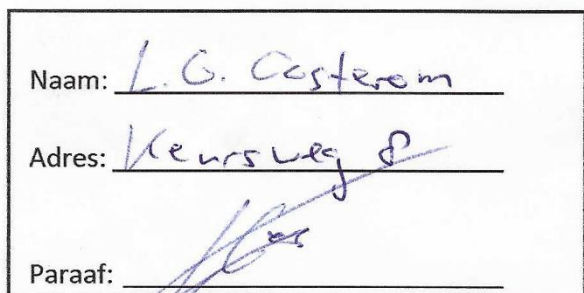 Naam: L. G. Oosterom
Adres: Keursweg 8
Paraaf: